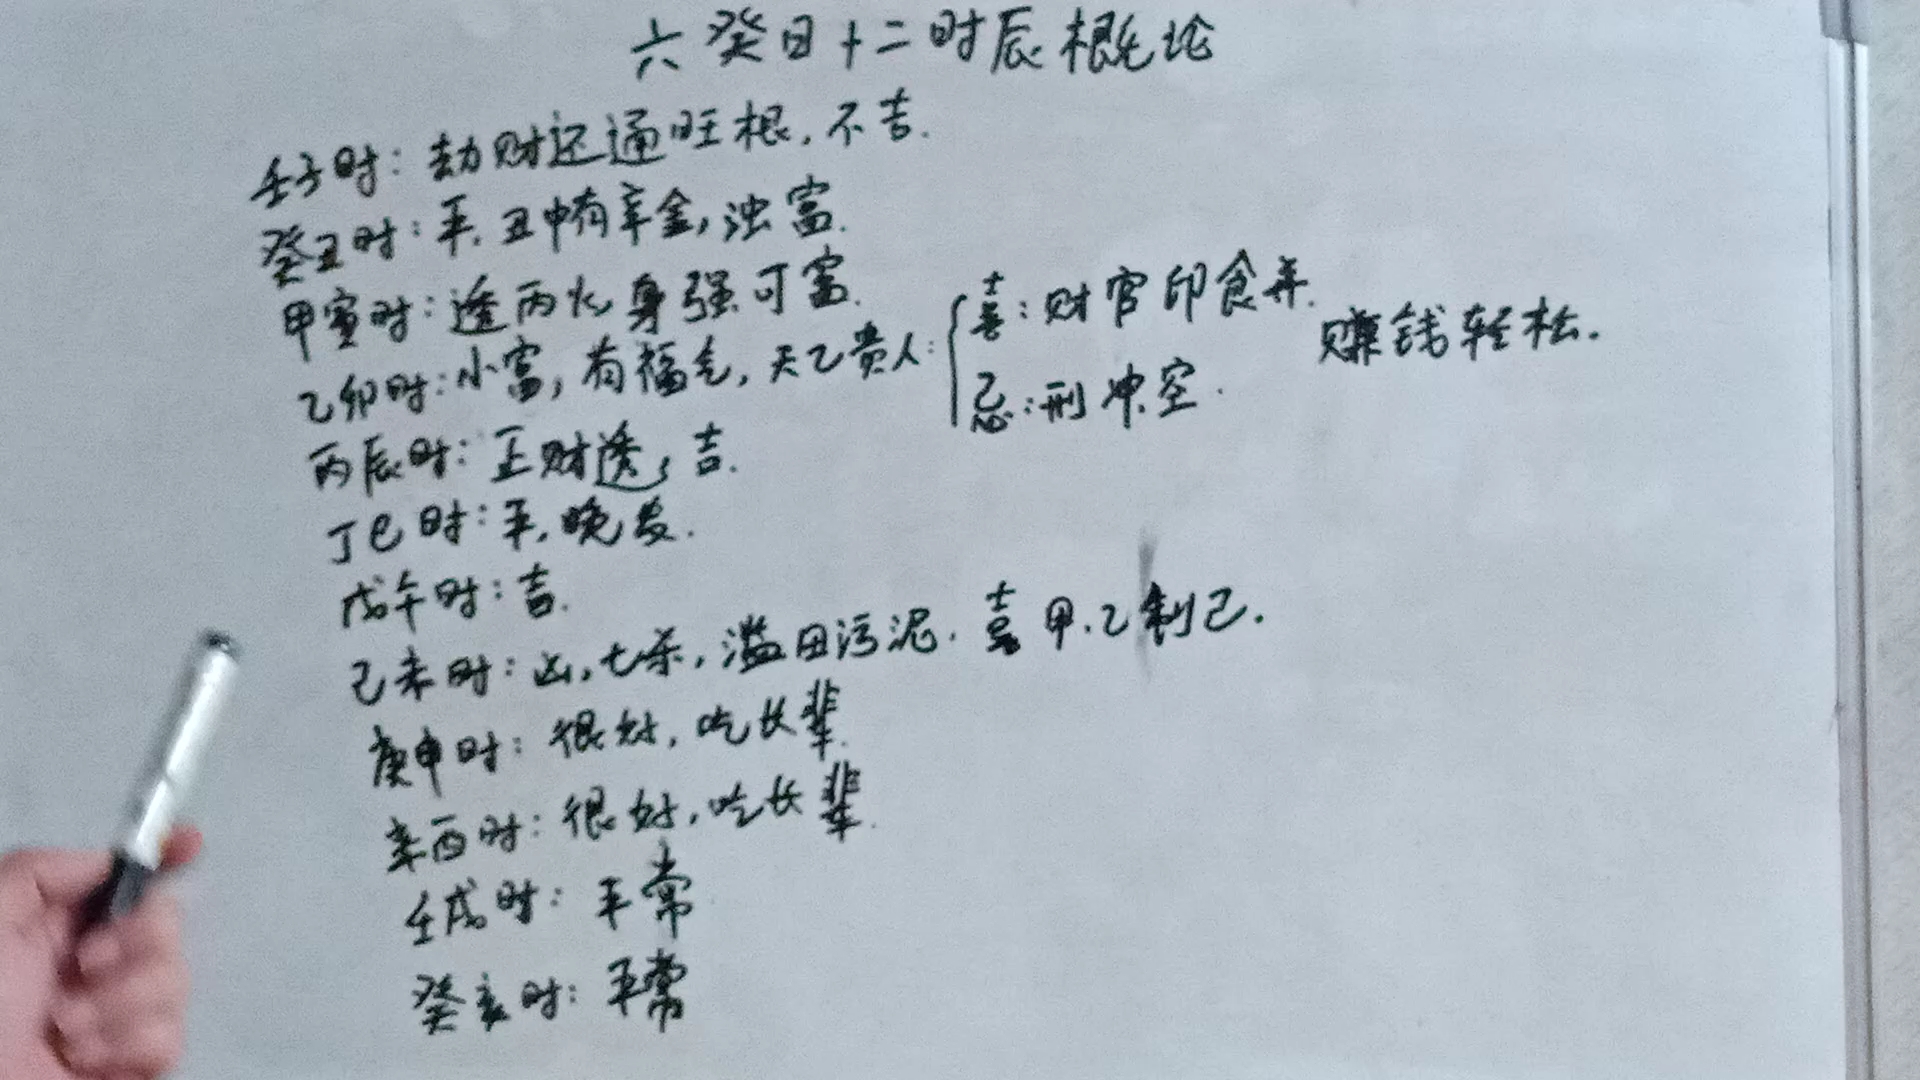 六癸日十二时辰概论
壬子时：劫财还通旺根，不吉．
癸丑时：平．丑中有辛金，浊富．
甲寅时：透丙火身强可富．
乙卯时：小富，有福气，天乙贵人：
喜：财官印食并．
忌：刑冲空．
赚钱轻松．
丙辰时：正财透，吉．
丁巳时：平．晚发．
戊午时：吉．
己未时：凶，七杀，滥田污泥．喜甲．乙制己．
庚申时：很好，吃长辈．
辛酉时：很好，吃长辈．
壬戌时：平常
癸亥时：平常